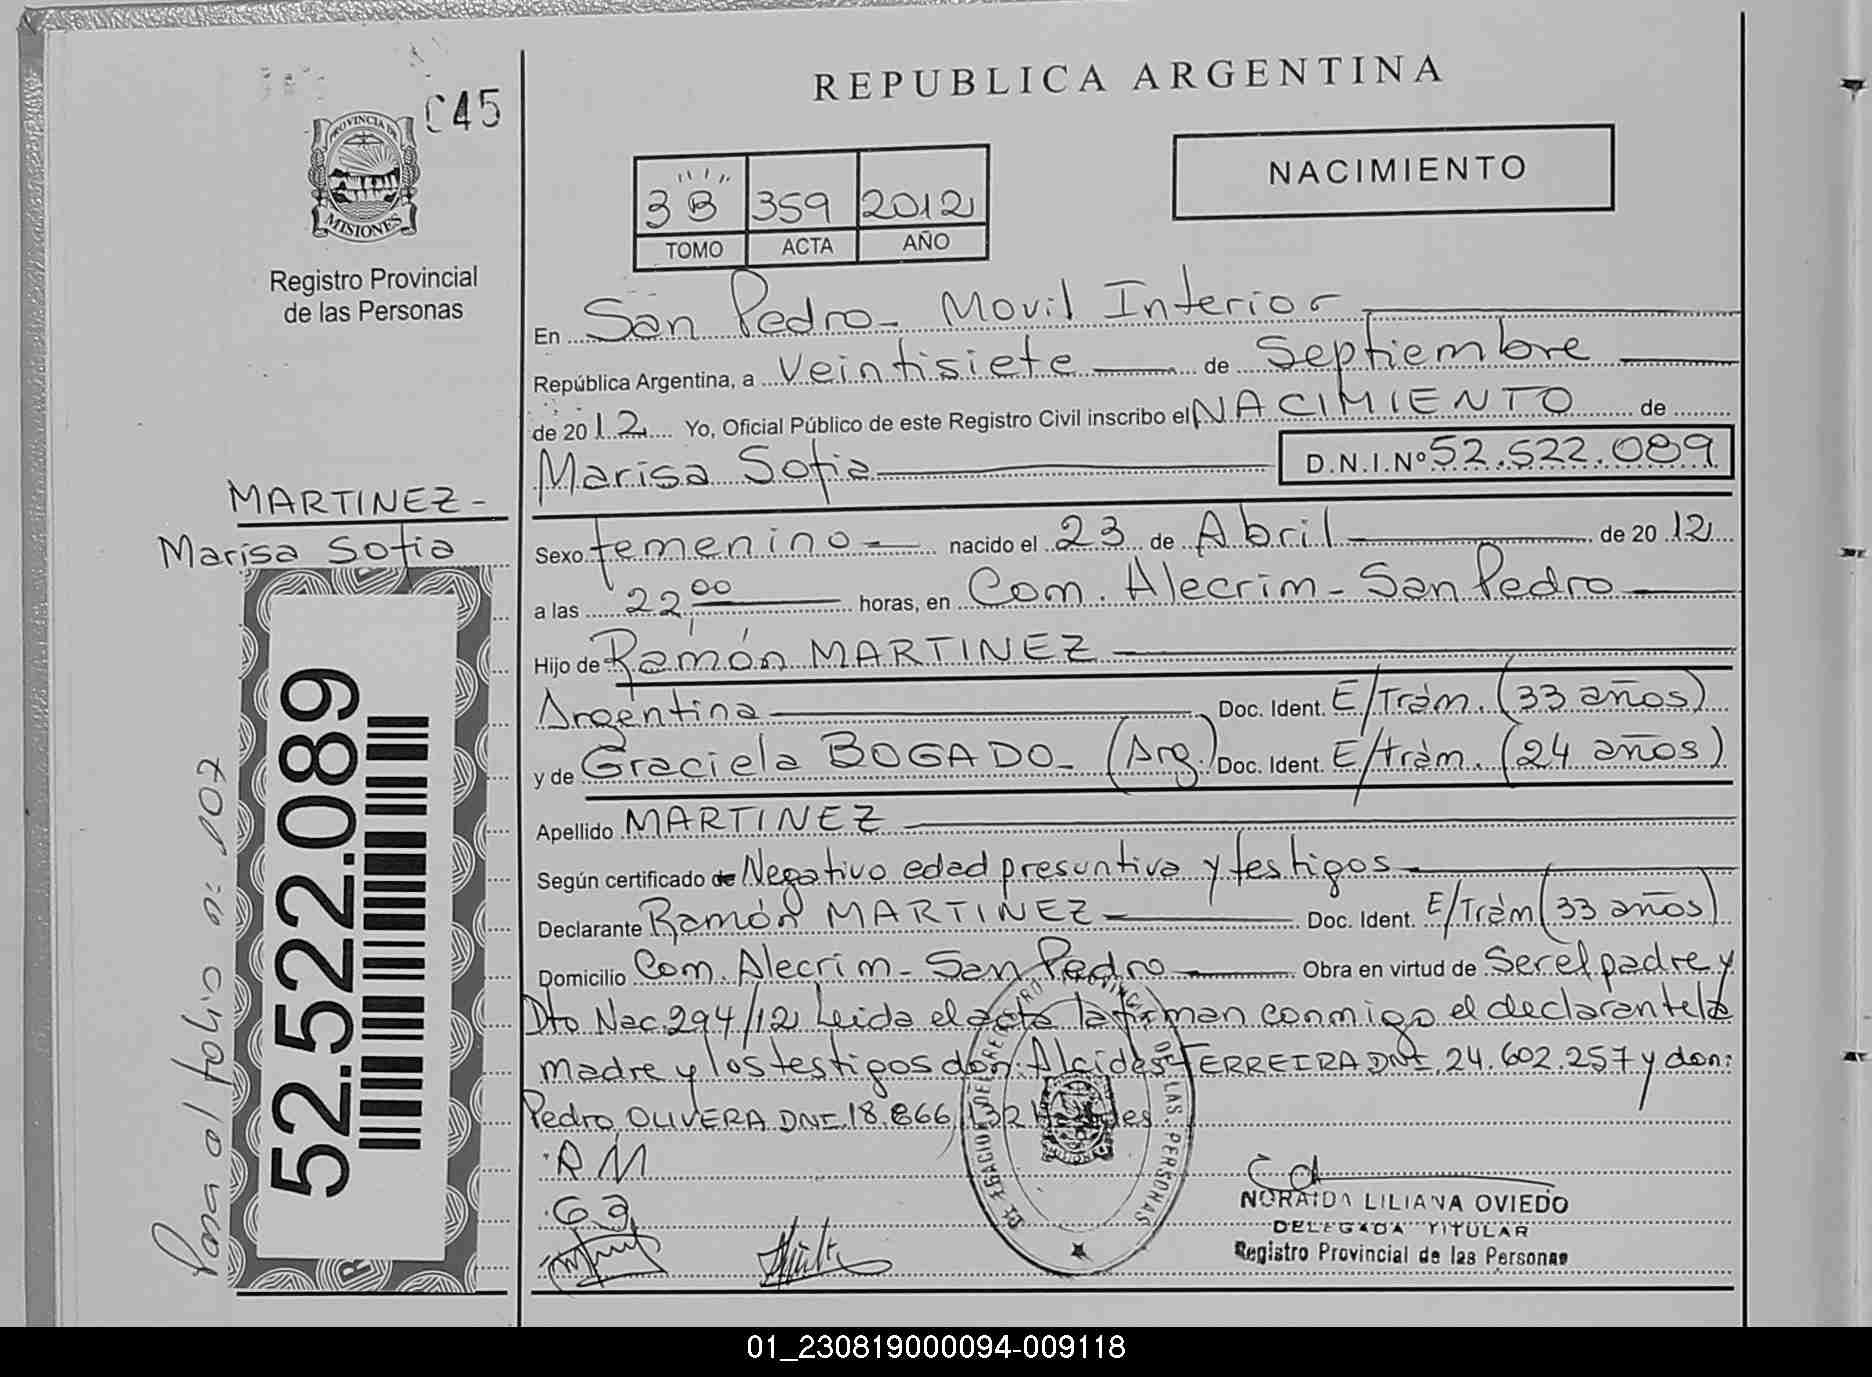 045
PROVINCIA DE
MISIONES
Registro Provincial
de las Personas
REPUBLICA ARGENTINA
NACIMIENTO
3 B 359 2012
TOMO ACTA AÑO
En San Pedro - Movil Interior
República Argentina, a veintisiete de Septiembre
de 2012 Yo, Oficial Público de este Registro Civil inscribo el NACIMIENTO de
Marisa Sofia D.N.I.Nº 52.522.089
MARTINEZ -
Marisa Sofia
Sexo femenino nacido el 23 de Abril de 2012
a las 22,00 horas, en Com. Alecrim - San Pedro
Hijo de Ramón MARTINEZ
Argentina Doc. Ident. E/Trám. (33 años)
y de Graciela BOGADO - (Arg.) Doc. Ident. E/trám. (24 años)
Apellido MARTINEZ
Según certificado de Negativo edad presuntiva y testigos
Declarante Ramón MARTINEZ Doc. Ident. E/Trám (33 años)
Domicilio Com. Alecrim - San Pedro Obra en virtud de Ser el padre y
Dto Nac. 294/12 Leida el acta la firman conmigo el declarante la
madre y los testigos don: Alcides FERREIRA DNI. 24.602.257 y don:
Pedro OLIVERA DNI. 18.866
RM
Ga
NORAIDA LILIANA OVIEDO
DELEGADA TITULAR
Registro Provincial de las Personas
52.522.089
Pasa al folio nº 107
01_230819000094-009118